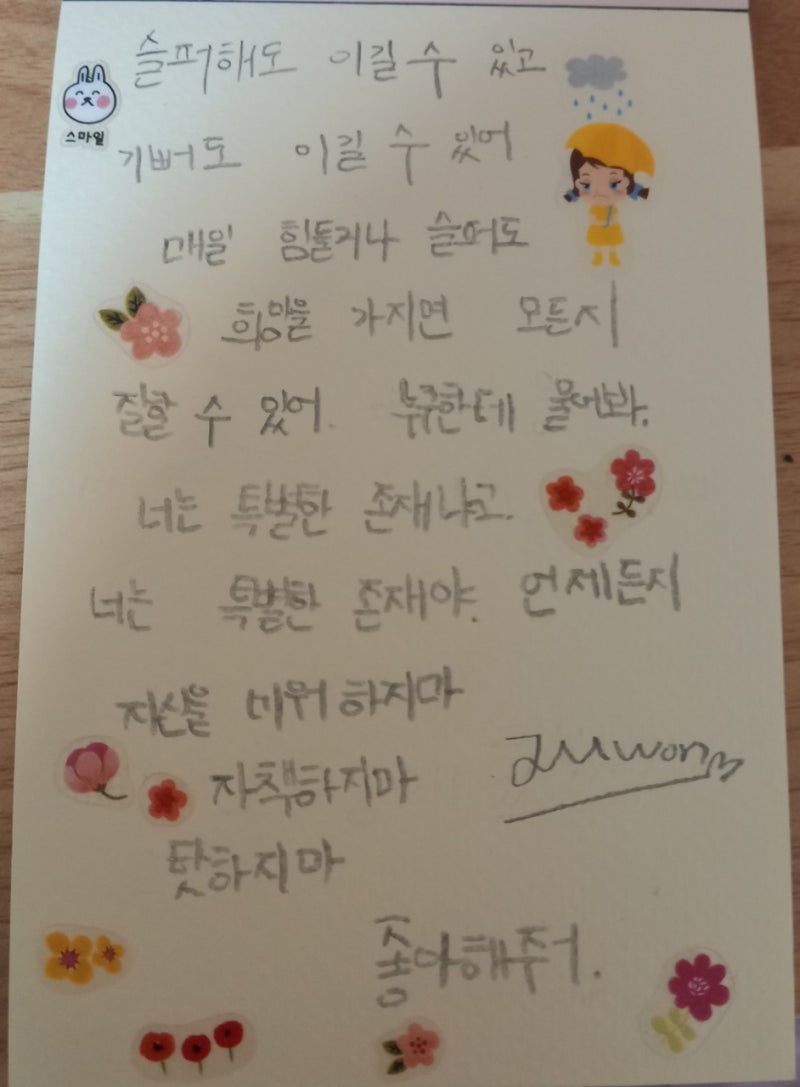 슬퍼해도 이길 수 있고
스마일
기뻐도 이길 수 있어
매일 힘들거나 슬퍼도
희망을 가지면 모든지
잘할 수 있어. 누구한테 물어봐.
너는 특별한 존재냐고.
너는 특별한 존재야. 언제든지
자신을 미워하지마
Juwon
자책하지마
탓하지마
좋아해주어.